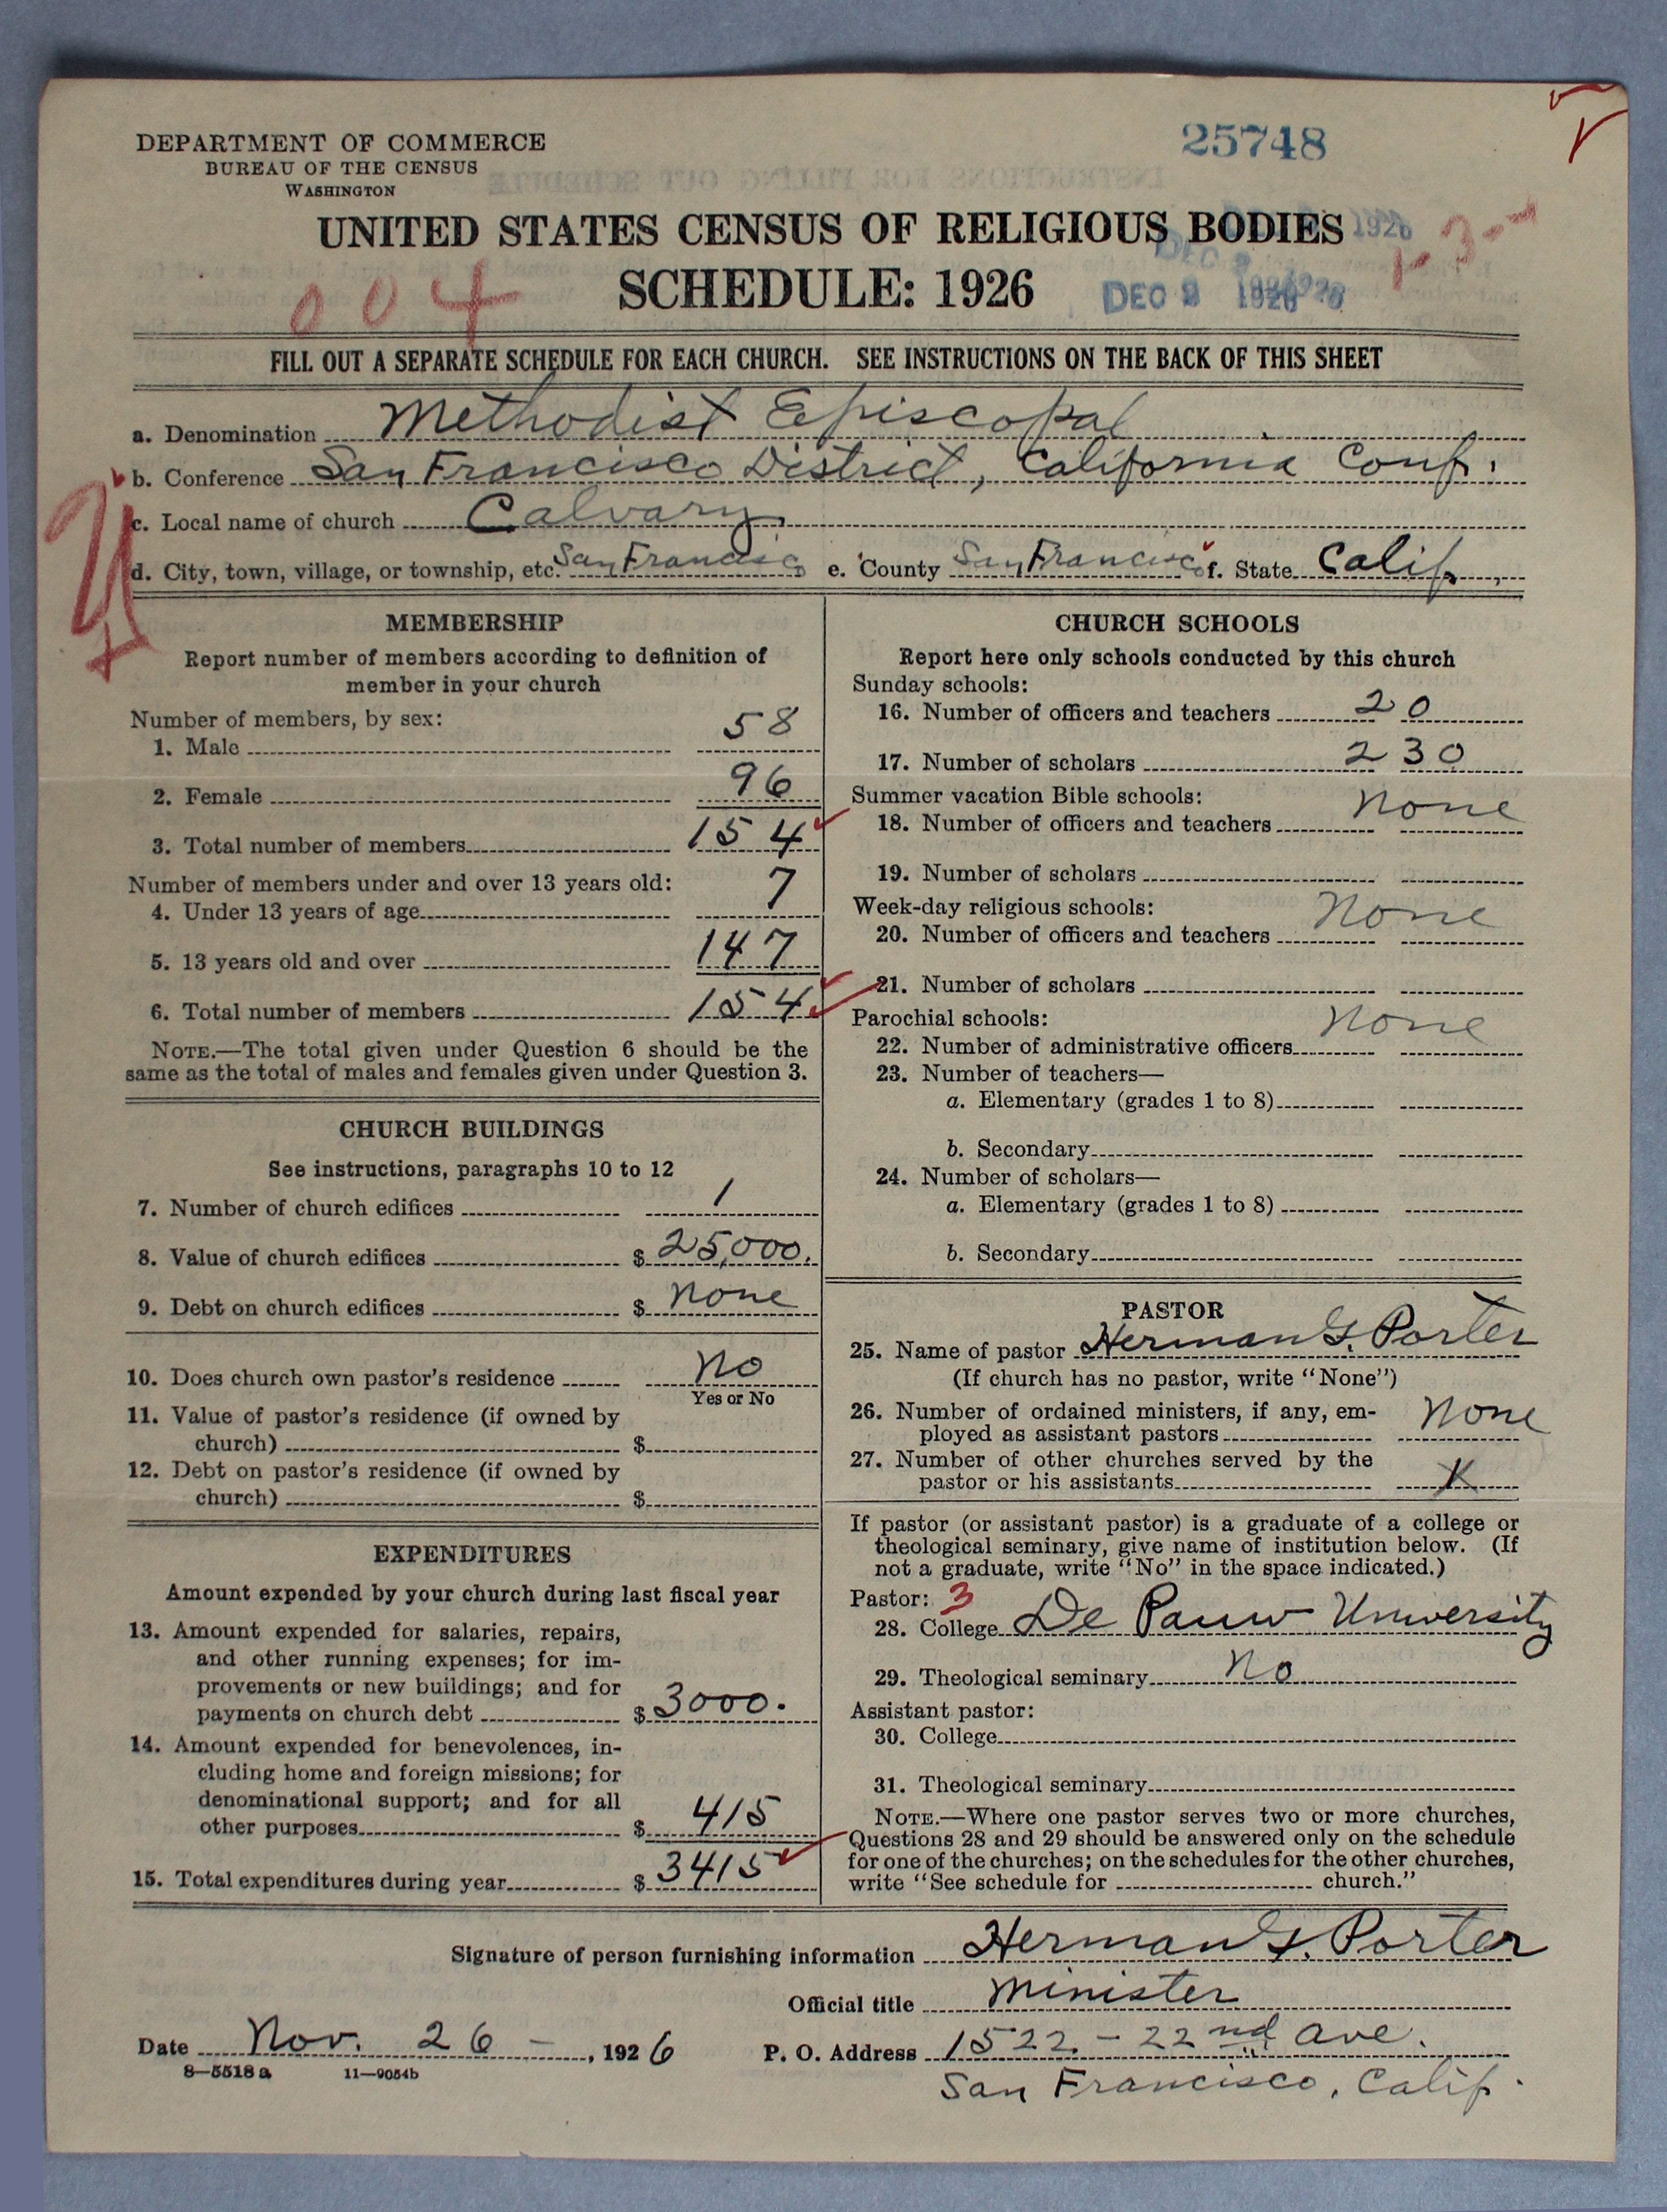 DEPARTMENT OF COMMERCE
BUREAU OF THE CENSUS
WASHINGTON
25748
UNITED STATES CENSUS OF RELIGIOUS BODIES
SCHEDULE: 1926
DEC 1926
004
1-3--
FILL OUT A SEPARATE SCHEDULE FOR EACH CHURCH. SEE INSTRUCTIONS ON THE BACK OF THIS SHEET
a. Denomination Methodist Episcopal
b. Conference San Francisco District, California Conf.
c. Local name of church Calvary
d. City, town, village, or township, etc. San Francisco e. County San Francisco f. State Calif.
MEMBERSHIP
Report number of members according to definition of
member in your church
Number of members, by sex:
1. Male 58
2. Female 96
3. Total number of members 154
Number of members under and over 13 years old:
4. Under 13 years of age 7
5. 13 years old and over 147
6. Total number of members 154
NOTE.—The total given under Question 6 should be the
same as the total of males and females given under Question 3.
CHURCH BUILDINGS
See instructions, paragraphs 10 to 12
7. Number of church edifices 1
8. Value of church edifices $ 25,000.
9. Debt on church edifices $ None
10. Does church own pastor's residence No
Yes or No
11. Value of pastor's residence (if owned by
church) $
12. Debt on pastor's residence (if owned by
church) $
EXPENDITURES
Amount expended by your church during last fiscal year
13. Amount expended for salaries, repairs,
and other running expenses; for im-
provements or new buildings; and for
payments on church debt $ 3000.
14. Amount expended for benevolences, in-
cluding home and foreign missions; for
denominational support; and for all
other purposes $ 415
15. Total expenditures during year $ 3415
CHURCH SCHOOLS
Report here only schools conducted by this church
Sunday schools:
16. Number of officers and teachers 20
17. Number of scholars 230
Summer vacation Bible schools:
18. Number of officers and teachers None
19. Number of scholars
Week-day religious schools:
20. Number of officers and teachers None
21. Number of scholars
Parochial schools:
22. Number of administrative officers None
23. Number of teachers—
a. Elementary (grades 1 to 8)
b. Secondary
24. Number of scholars—
a. Elementary (grades 1 to 8)
b. Secondary
PASTOR
25. Name of pastor Herman G. Porter
(If church has no pastor, write "None")
26. Number of ordained ministers, if any, em-
ployed as assistant pastors None
27. Number of other churches served by the
pastor or his assistants X
If pastor (or assistant pastor) is a graduate of a college or
theological seminary, give name of institution below. (If
not a graduate, write "No" in the space indicated.)
Pastor: 3
28. College De Pauw University
29. Theological seminary No
Assistant pastor:
30. College
31. Theological seminary
NOTE.—Where one pastor serves two or more churches,
Questions 28 and 29 should be answered only on the schedule
for one of the churches; on the schedules for the other churches,
write "See schedule for church."
Signature of person furnishing information Herman G. Porter
Official title Minister
Date Nov. 26 - , 1926 P. O. Address 1522 - 22nd Ave.
San Francisco, Calif.
8—5518 a 11—9054b